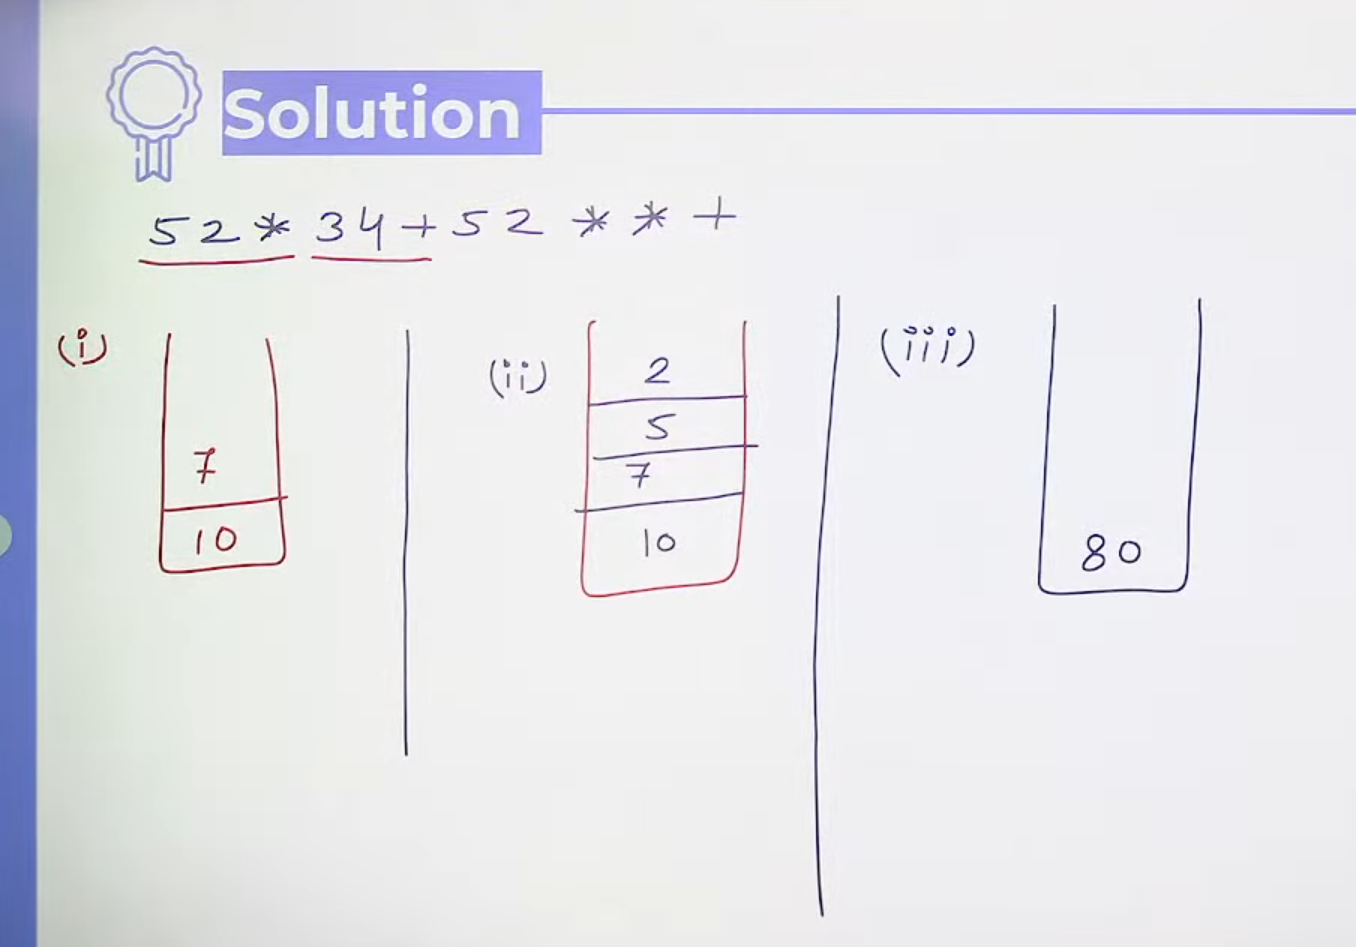 Solution
52*34+52**+
(i)
7
10
(ii)
2
5
7
10
(iii)
80